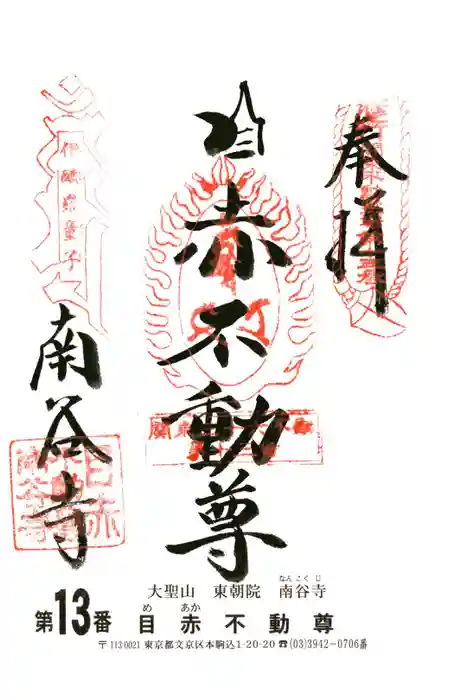 奉拝
目赤不動尊
南谷寺
伊醯羅童子
大聖山 東朝院 南谷寺
なんこくじ
第13番 目赤不動尊
め あか
〒113-0021 東京都文京区本駒込1-20-20 ☎(03)3942-0706番